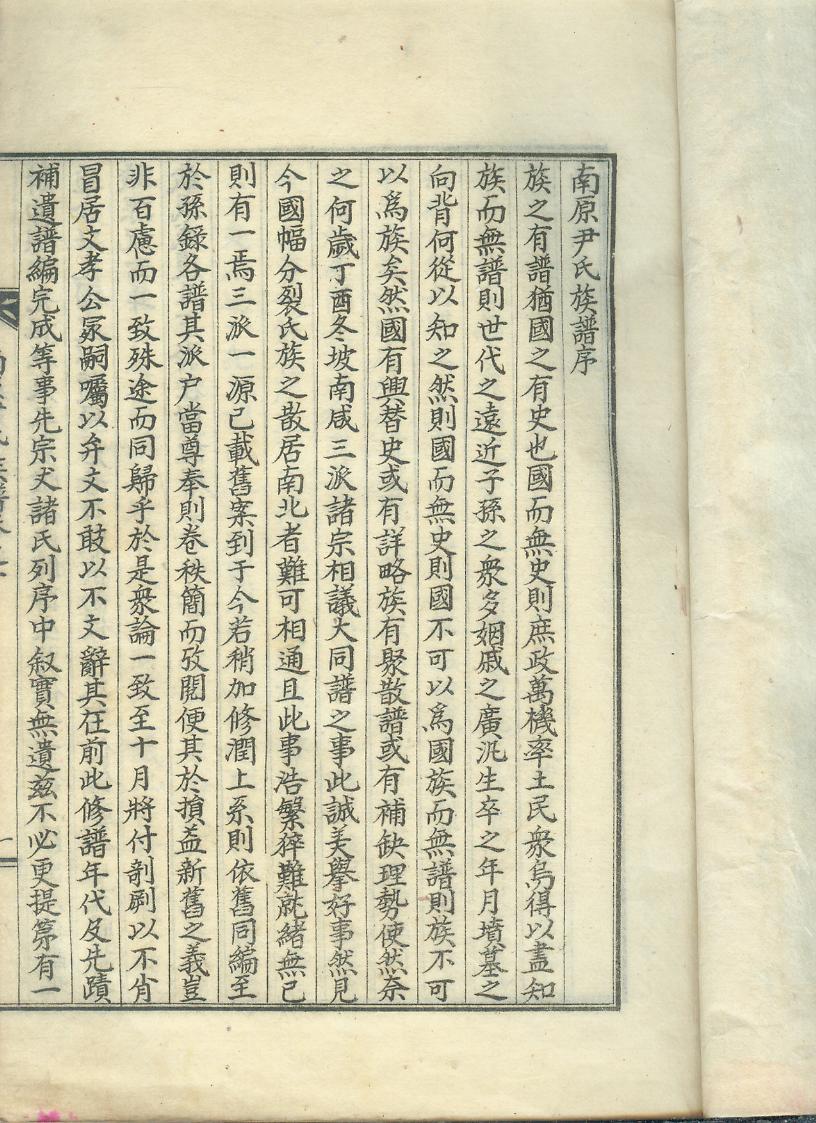 南原尹氏族譜序
族之有譜猶國之有史也國而無史則庶政萬機率土民衆烏得以盡知
族而無譜則世代之遠近子孫之衆多姻戚之廣汎生卒之年月墳墓之
向背何從以知之然則國而無史則國不可以爲國族而無譜則族不可
以爲族矣然國有興替史或有詳略族有聚散譜或有補缺理勢使然奈
之何歲丁酉冬坡南咸三派諸宗相議大同譜之事此誠美擧好事然見
今國幅分裂氏族之散居南北者難可相通且此事浩繁猝難就緖無已
則有一焉三派一源已載舊案到于今若稍加修潤上系則依舊同編至
於孫錄各譜其派户當尊奉則卷秩簡而攷閱便其於損益新舊之義豈
非百慮而一致殊途而同歸乎於是衆論一致至十月將付剞劂以不肖
冒居文孝公冢嗣囑以弁文不敢以不文辭其在前此修譜年代及先蹟
補遺譜編完成等事先宗丈諸氏列序中叙實無遺玆不必更提第有一